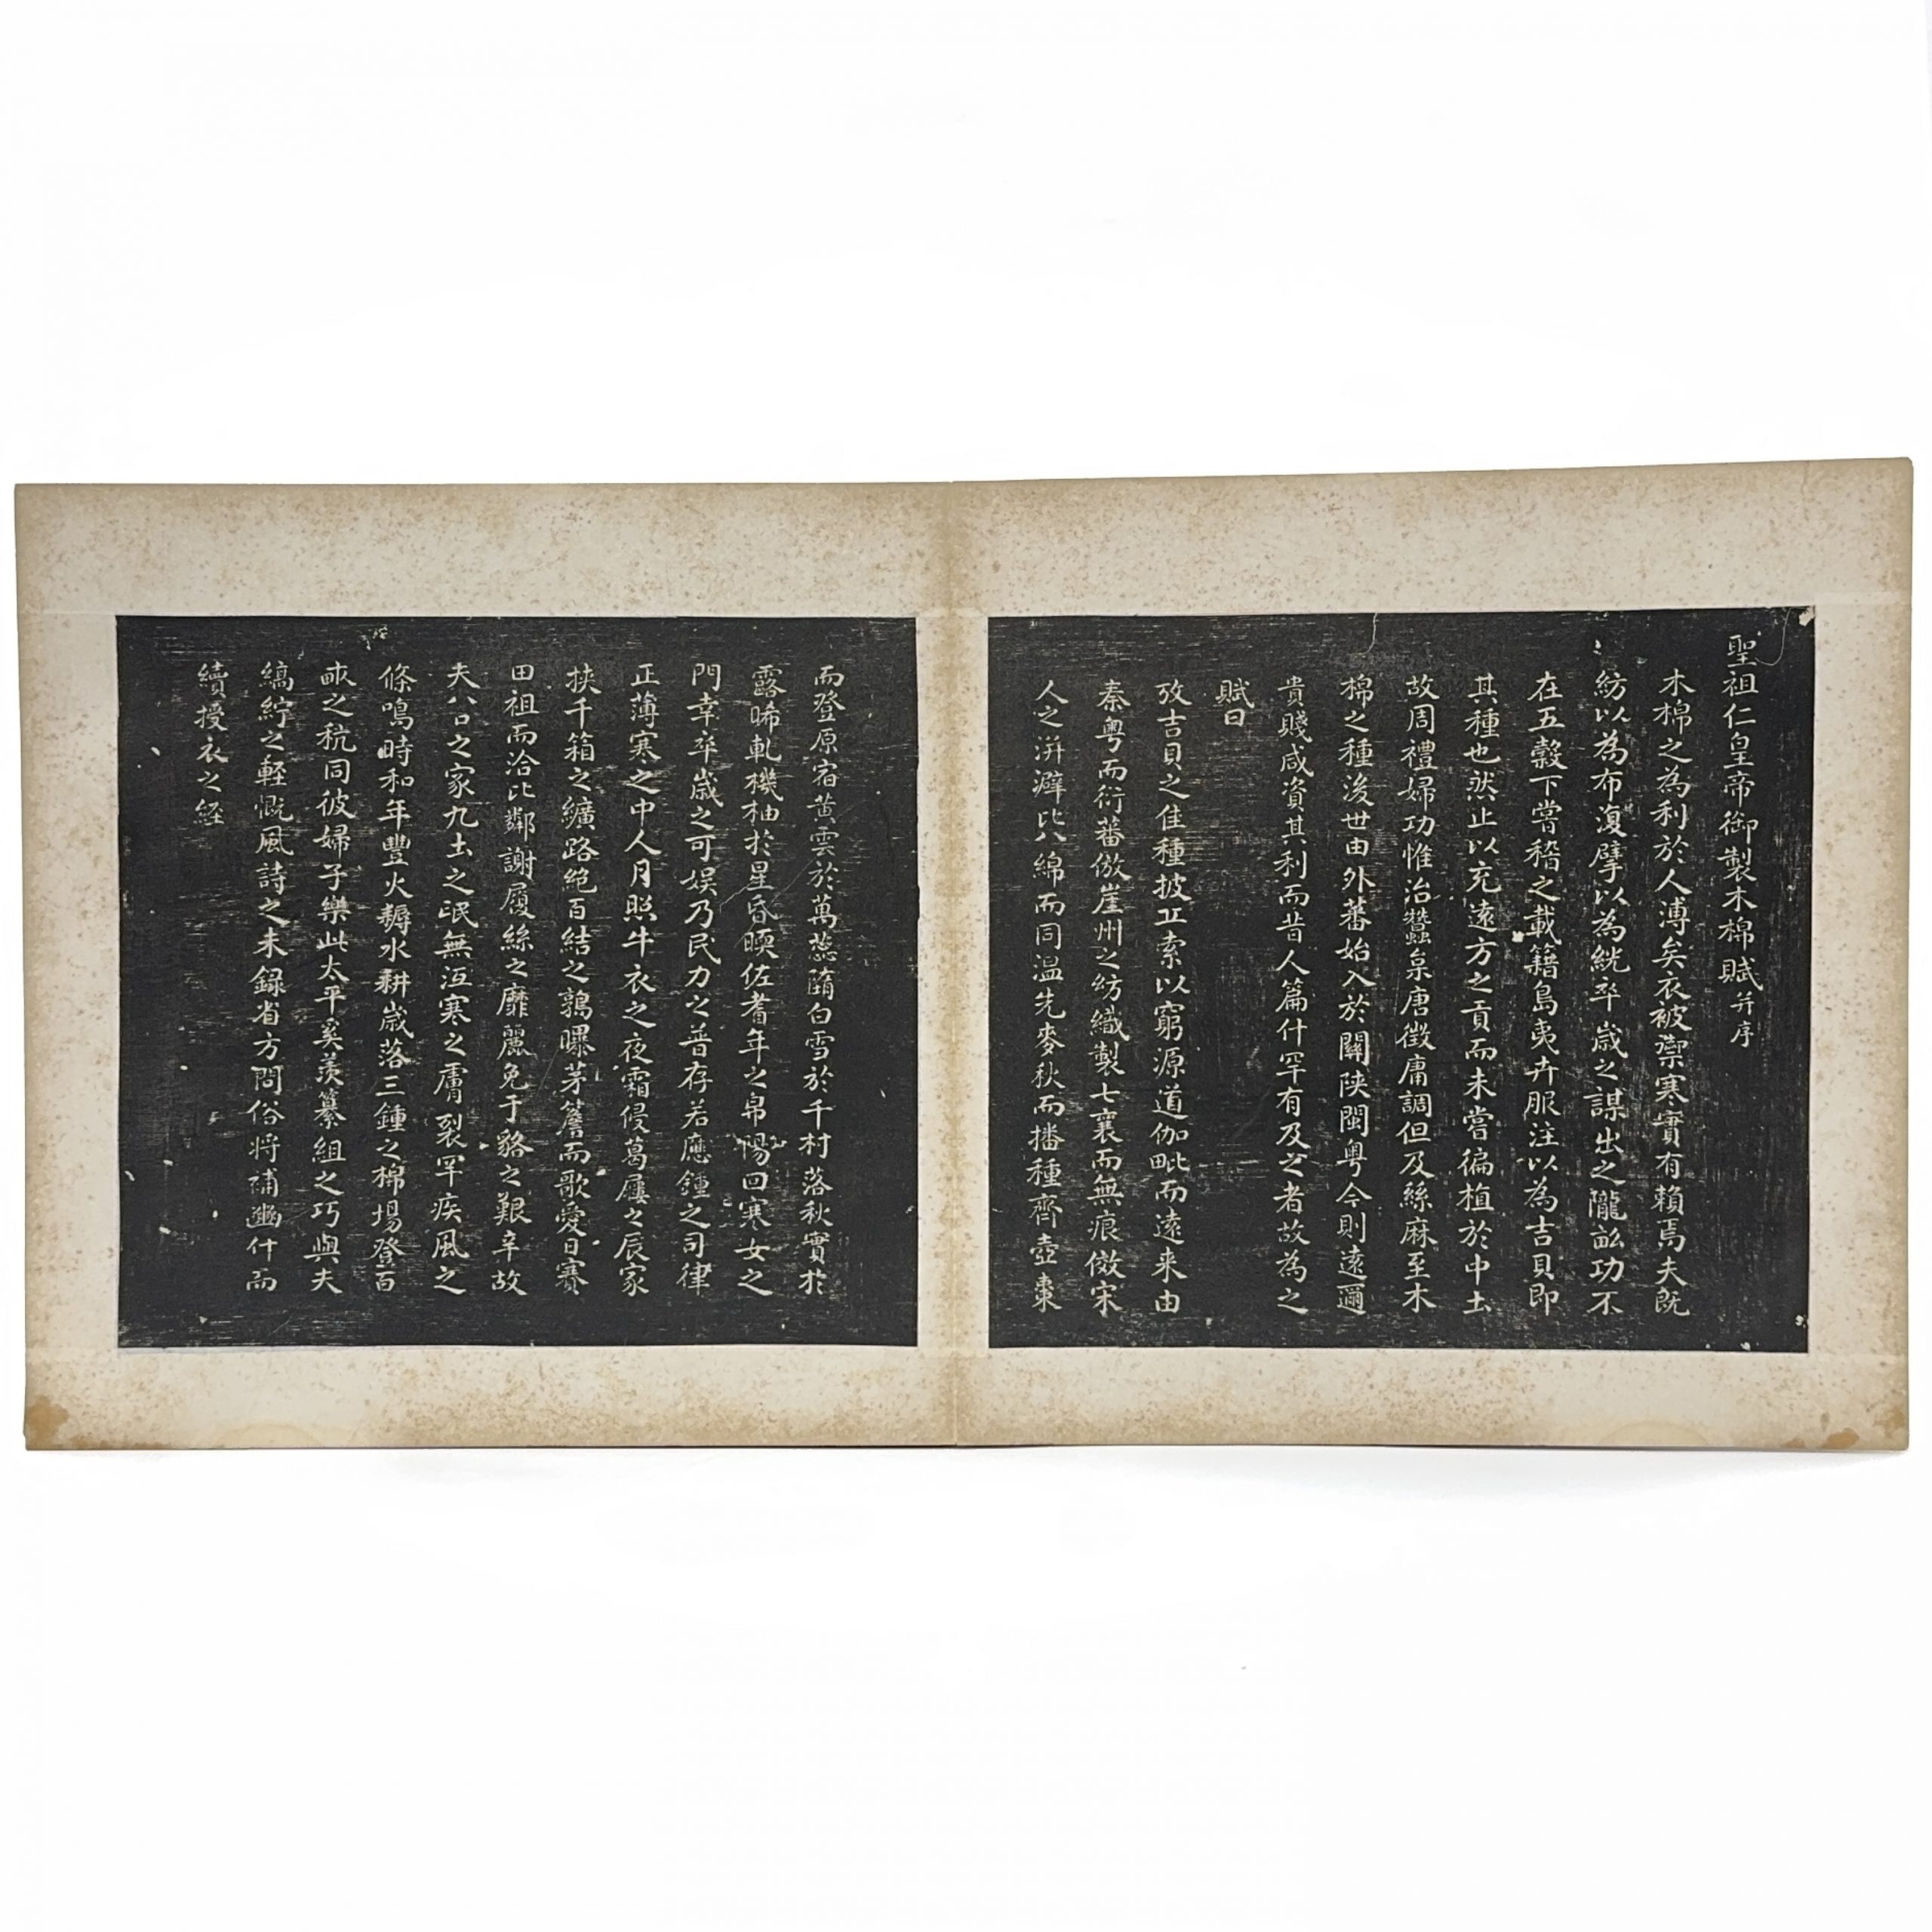 聖祖仁皇帝御製木棉賦并序
木棉之為利於人溥矣衣被禦寒實有賴焉夫既
紡以為布復擘以為絖卒歲之謀出之隴畝功不
在五穀下嘗稽之載籍島夷卉服注以為吉貝即
其種也然止以充遠方之貢而未嘗徧植於中土
故周禮婦功惟治蠶枲唐徵庸調但及絲麻至木
棉之種後世由外蕃始入於關陝閩粵今則遠邇
貴賤咸資其利而昔人篇什罕有及之者故為之
賦曰
攷吉貝之佳種披丘索以窮源道伽毗而遠來由
秦粵而衍蕃倣崖州之紡織製七襄而無痕倣宋
人之洴澼比八綿而同溫先麥秋而播種齊壺棗
而登原宿黃雲於萬蕊隨白雪於千村落秋實於
露晞軋機柚於星昏暝佐耆年之帛惕回寒女之
門幸卒歲之可娛乃民力之普存若應鍾之司律
正薄寒之中人月照牛衣之夜霜侵葛屨之辰家
挾千箱之纊路絕百結之鶉曝茅簷而歌愛日賽
田祖而洽比鄰謝履絲之靡麗免于貉之艱辛故
夫八口之家九土之氓無沍寒之膚裂罕疾風之
條鳴時和年豐火耨水耕歲落三鍾之棉場登百
畝之秔同彼婦子樂此太平奚羨纂組之巧與夫
縞紵之輕慨風詩之未錄省方問俗將補豳什而
續授衣之經